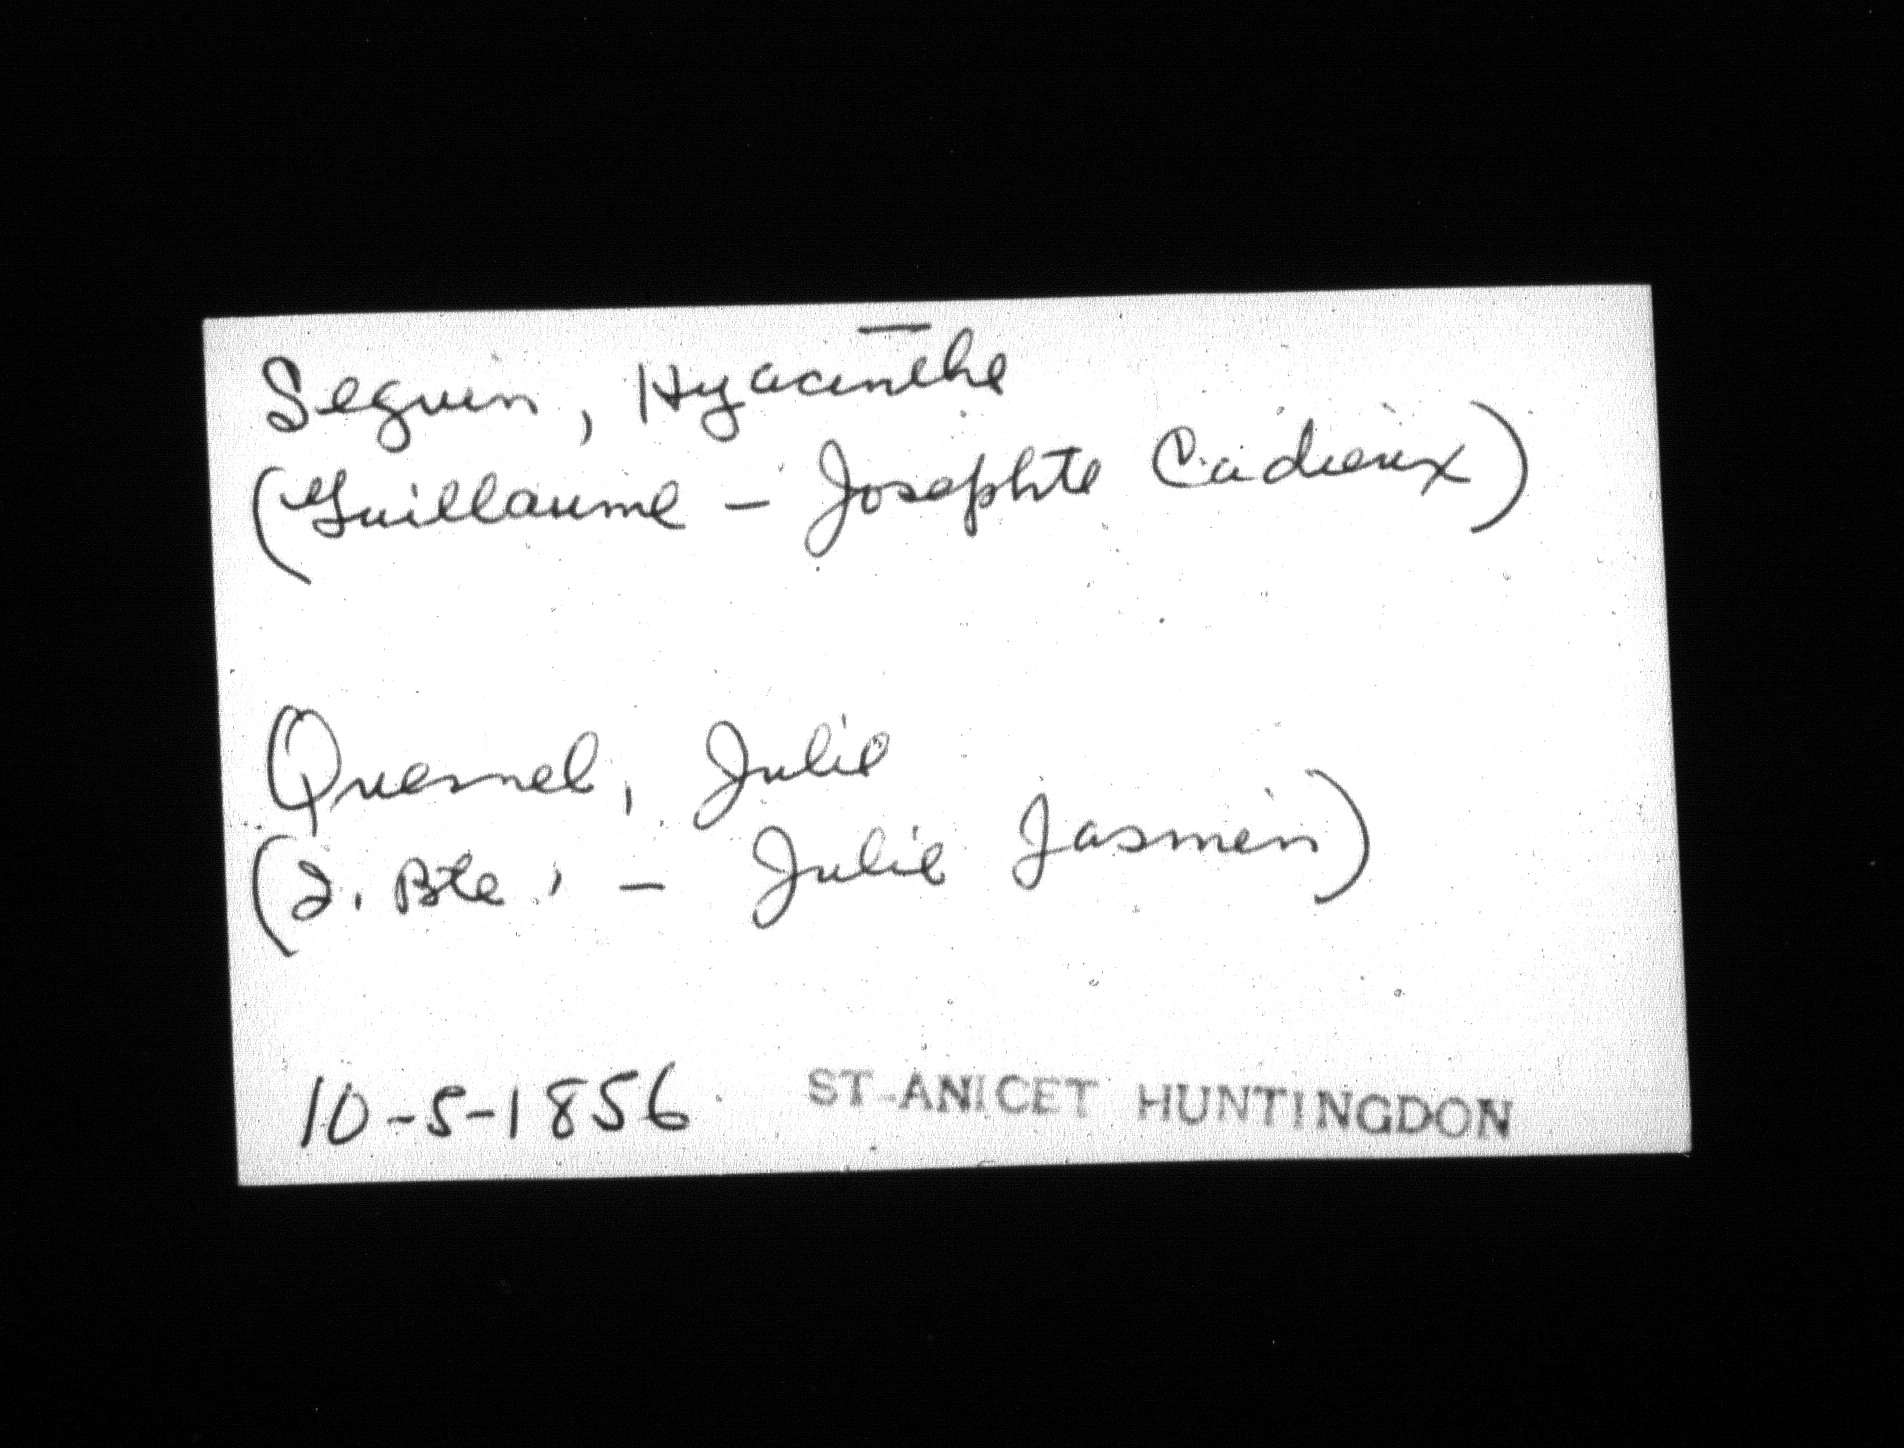 Seguin, Hyacinthe
(Guillaume - Josephte Cadieux)
Quesnel, Julie
(J. Bte. - Julie Jasmin)
10-5-1856 ST-ANICET HUNTINGDON